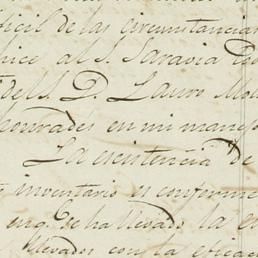 ficil de las circunstancias
hice al S. Saravia
del S. D. Lauro
honrades en mi manejo
La existencia de
inventario es conforme
eng. se ha llevado la
llevados con la eficac